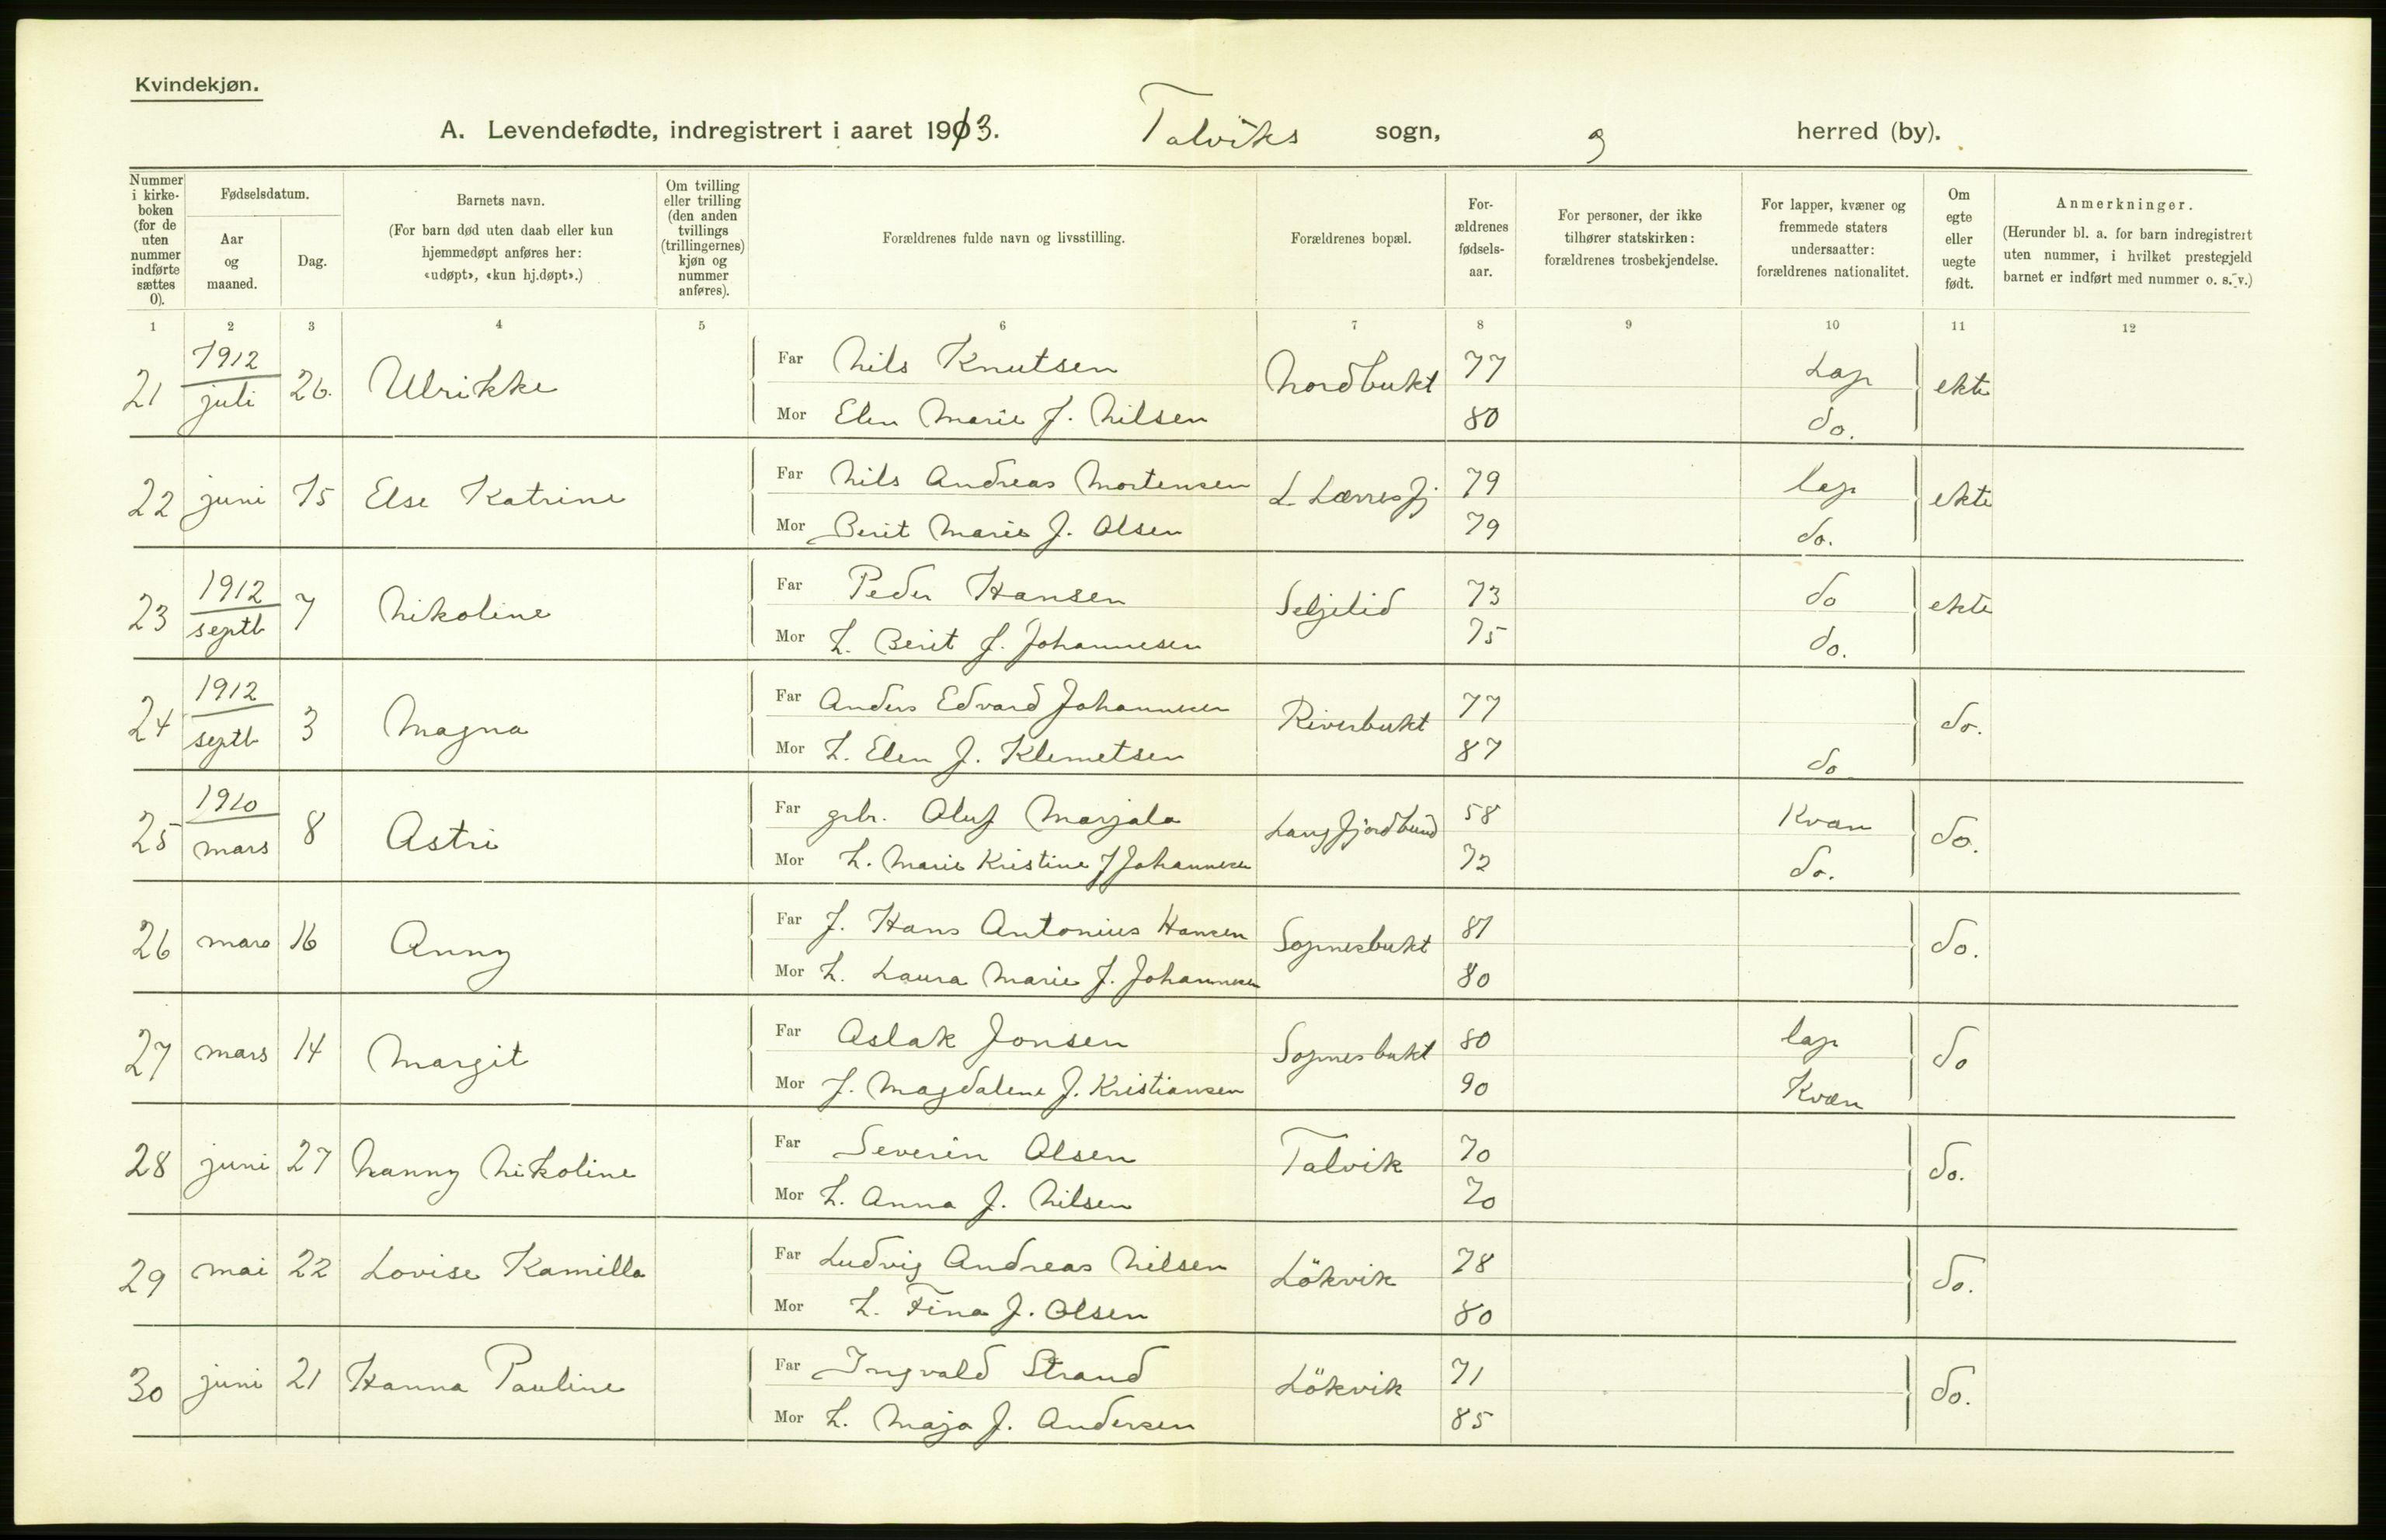 Kvindekjøn.
A. Levendefødte, indregistrert i aaret 1913. Talviks sogn, herred (by).
Nummer i kirkeboken (for de uten nummer indførte sættes 0).
Fødselsdatum.
Aar og maaned.
Dag.
Barnets navn.
(For barn død uten daab eller kun hjemmedøpt anføres her: «udøpt», «kun hj.døpt».)
Om tvilling eller trilling (den anden tvillings (trillingernes) kjøn og nummer anføres).
Forældrenes fulde navn og livsstilling.
Forældrenes bopæl.
Forældrenes fødselsaar.
For personer, der ikke tilhører statskirken: forældrenes trosbekjendelse.
For lapper, kvæner og fremmede staters undersaatter: forældrenes nationalitet.
Om egte eller uegte født.
Anmerkninger.
(Herunder bl. a. for barn indregistrert uten nummer, i hvilket prestegjeld barnet er indført med nummer o. s. v.)
1 2 3 4 5 6 7 8 9 10 11 12
21 1912 juli 26. Ulrikke Far Nils Knutsen Nordbukt 77 Lap ekte
Mor Elen Marie f. Nilsen 80 do.
22 juni 15 Else Katrine Far Nils Andreas Mortensen L Lærresfj 79 lap ekte
Mor Berit Marie f. Olsen 79 do.
23 1912 septb 7 Nikoline Far Peder Hansen Seljelid 73 do ekte
Mor h. Berit f. Johannesen 75 do.
24 1912 septb 3 Magna Far Anders Edvard Johannesen Riverbukt 77 do.
Mor h. Elen f. Klemetsen 87 do
25 1910 mars 8 Astri Far gbr. Oluf Marjala Langfjordbund 58 Kvæn do.
Mor h. Marie Kristine f Johannesen 72 do.
26 mars 16 Anny Far f. Hans Antonius Hansen Sopnesbukt 81 do.
Mor h. Laura Marie f. Johannesen 80
27 mars 14 Margit Far Aslak Jonsen Sopnesbukt 80 lap do
Mor f. Magdalene f. Kristiansen 90 Kvæn
28 juni 27 Nanny Nikoline Far Severin Olsen Talvik 70 do.
Mor h. Anna f. Nilsen 70
29 mai 22 Lovise Kamilla Far Ludvig Andreas Nilsen Lökvik 78 do.
Mor h. Fina f. Olsen 80
30 juni 21 Hanna Pauline Far Ingvald Strand Lökvik 71 do.
Mor h. Maja f. Andersen 85